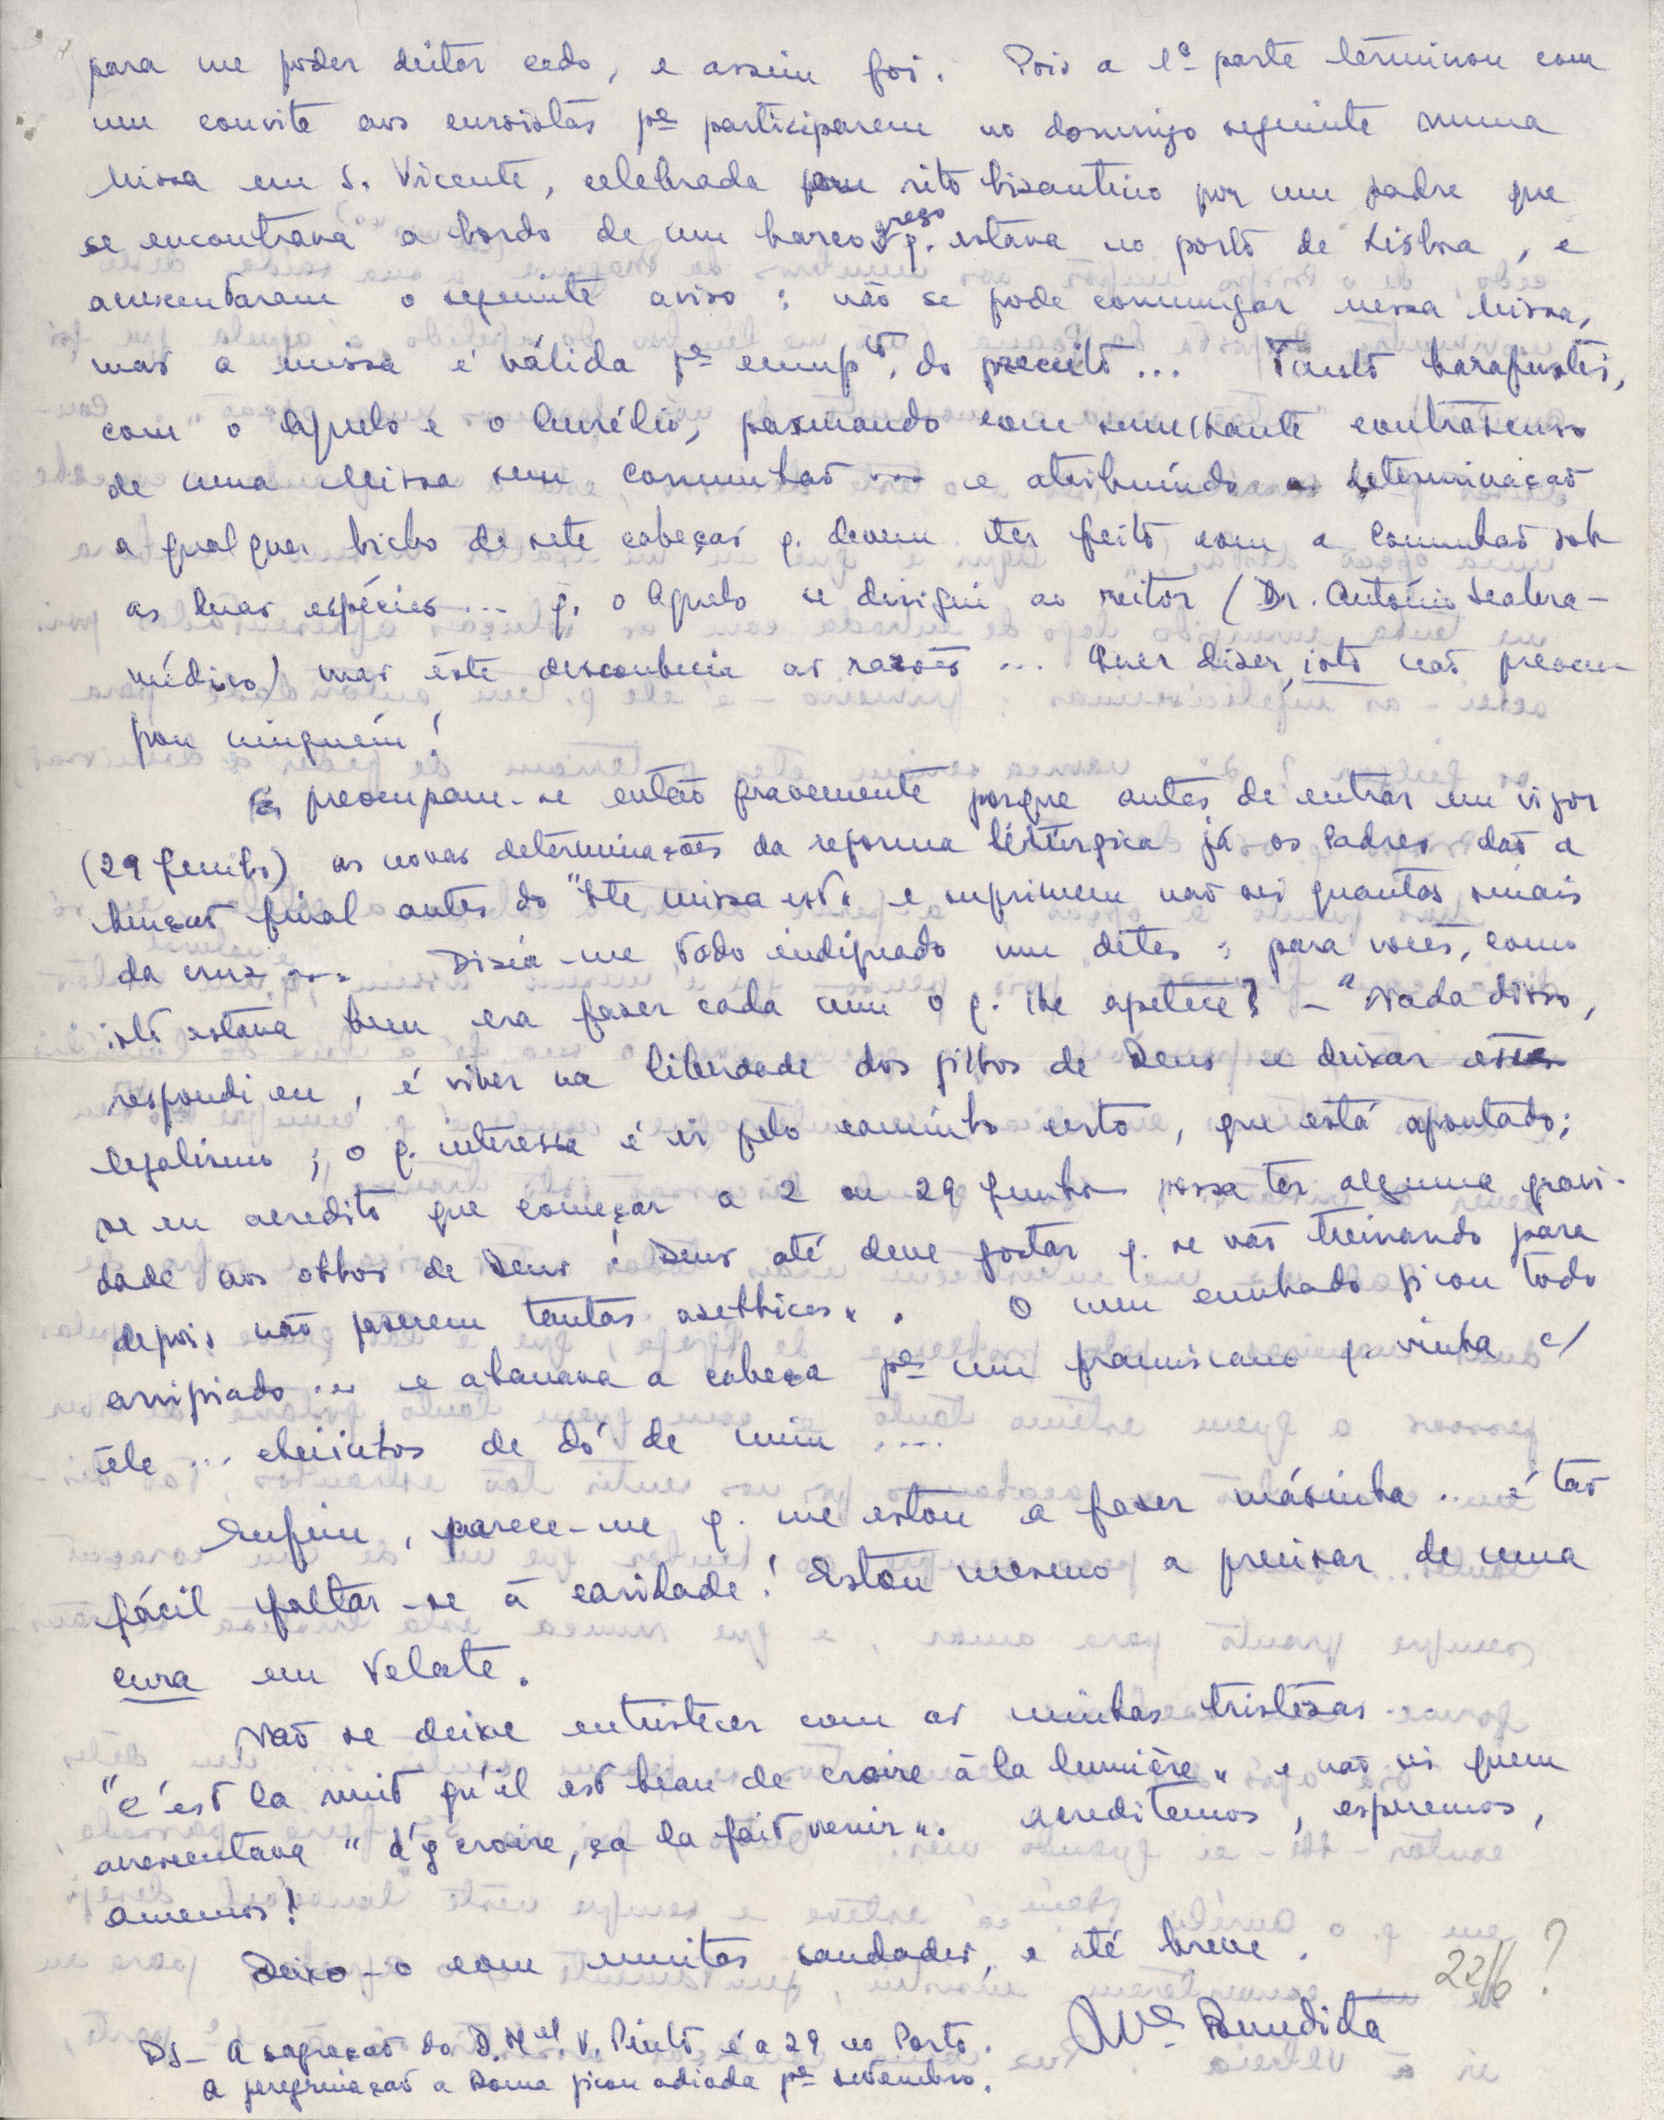 para me poder deitar cedo, e assim foi. Pois a 1ª parte terminou com
um convite aos cursistas pª participarem no domingo seguinte numa
Missa em S. Vicente, celebrada em rito bizantino por um padre que
se encontrava a bordo de um barco grego q. estava no porto de Lisboa, e
acrescentaram o seguinte aviso: não se pode comungar nessa Missa,
mas a missa é válida pª cump.to do preceito... Tanto barafustei,
com o Agnelo e o Aurélio, pasmando com semelhante contrasenso
de uma Missa sem Comunhão ... e atribuíndo a determinação
a qualquer bicho de sete cabeças q. devem ter feito com a Comunhão sob
as duas espécies ... q. o Agnelo se dirigiu ao reitor (Dr. António Seabra-
médico) mas êste desconhecia as razões ... Quer dizer, isto não preocu-
pou ninguém!
preocupam-se então gravemente porque antes de entrar em vigor
(29 Junho) as novas determinações da reforma litúrgica já os Padres dão a
benção final antes do "Ite missa est" e suprimem não sei quantos sinais
da cruz ... Dizia-me todo indignado um dêles: para vocês, como
isto estava bem era fazer cada um o q. lhe apetece? - "Nada disso,
respondi eu, é viver na liberdade dos filhos de Deus e deixar esse
legalismo; o q. interessa é ir pelo caminho certo, que está apontado;
se eu acredito que começar a 2 ou 29 Junho possa ter alguma gravi-
dade aos olhos de Deus! Deus até deve gostar q. se vão treinando para
depois não fazerem tantas aselhices". O meu cunhado ficou todo
arripiado ... e abanava a cabeça pª um franciscano q. vinha c/
êle ... cheiinhos de dó de mim ....
Enfim, parece-me q. me estou a fazer mázinha ... é tão
fácil faltar-se à caridade! Estou mesmo a precisar de uma
cura em Velate.
Não se deixe entristecer com as minhas tristezas.
"C'est la nuit qu'il est beau de croire à la lumière" e não sei quem
acrescentava "d'y croire, ça la fait venir". Acreditemos, esperemos,
amemos!
Deixo-o com muitas saudades, e até breve.
22/6?
Mª Benedita
PS - A sagração do D. Mel. V. Pinto é a 29 no Porto.
A peregrinação a Roma ficou adiada pª setembro.